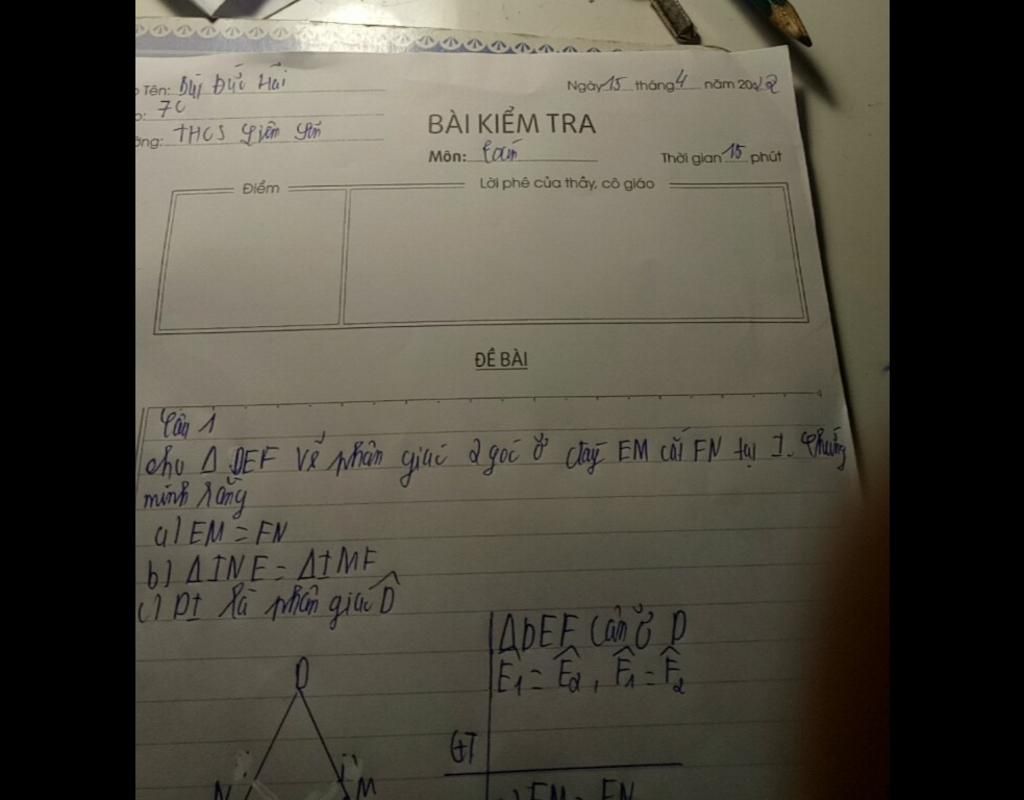 Tên: Bùi Đức Hải
Ngày 15 tháng 4 năm 2022
7C
THCS Liên
BÀI KIỂM TRA
Môn: Toán
Thời gian 15 phút
Điểm
Lời phê của thầy, cô giáo
ĐỀ BÀI
Câu 1
cho Δ DEF vẽ phân giác 2 góc ở đáy EM cắt FN tại I. Chứng
minh rằng
a) EM = FN
b) ΔINE = ΔIMF
c) DI là phân giác D̂
ΔDEF cân ở D
Ê1 = Ê2, F̂1 = F̂2
GT
D
N
M
EM = FN